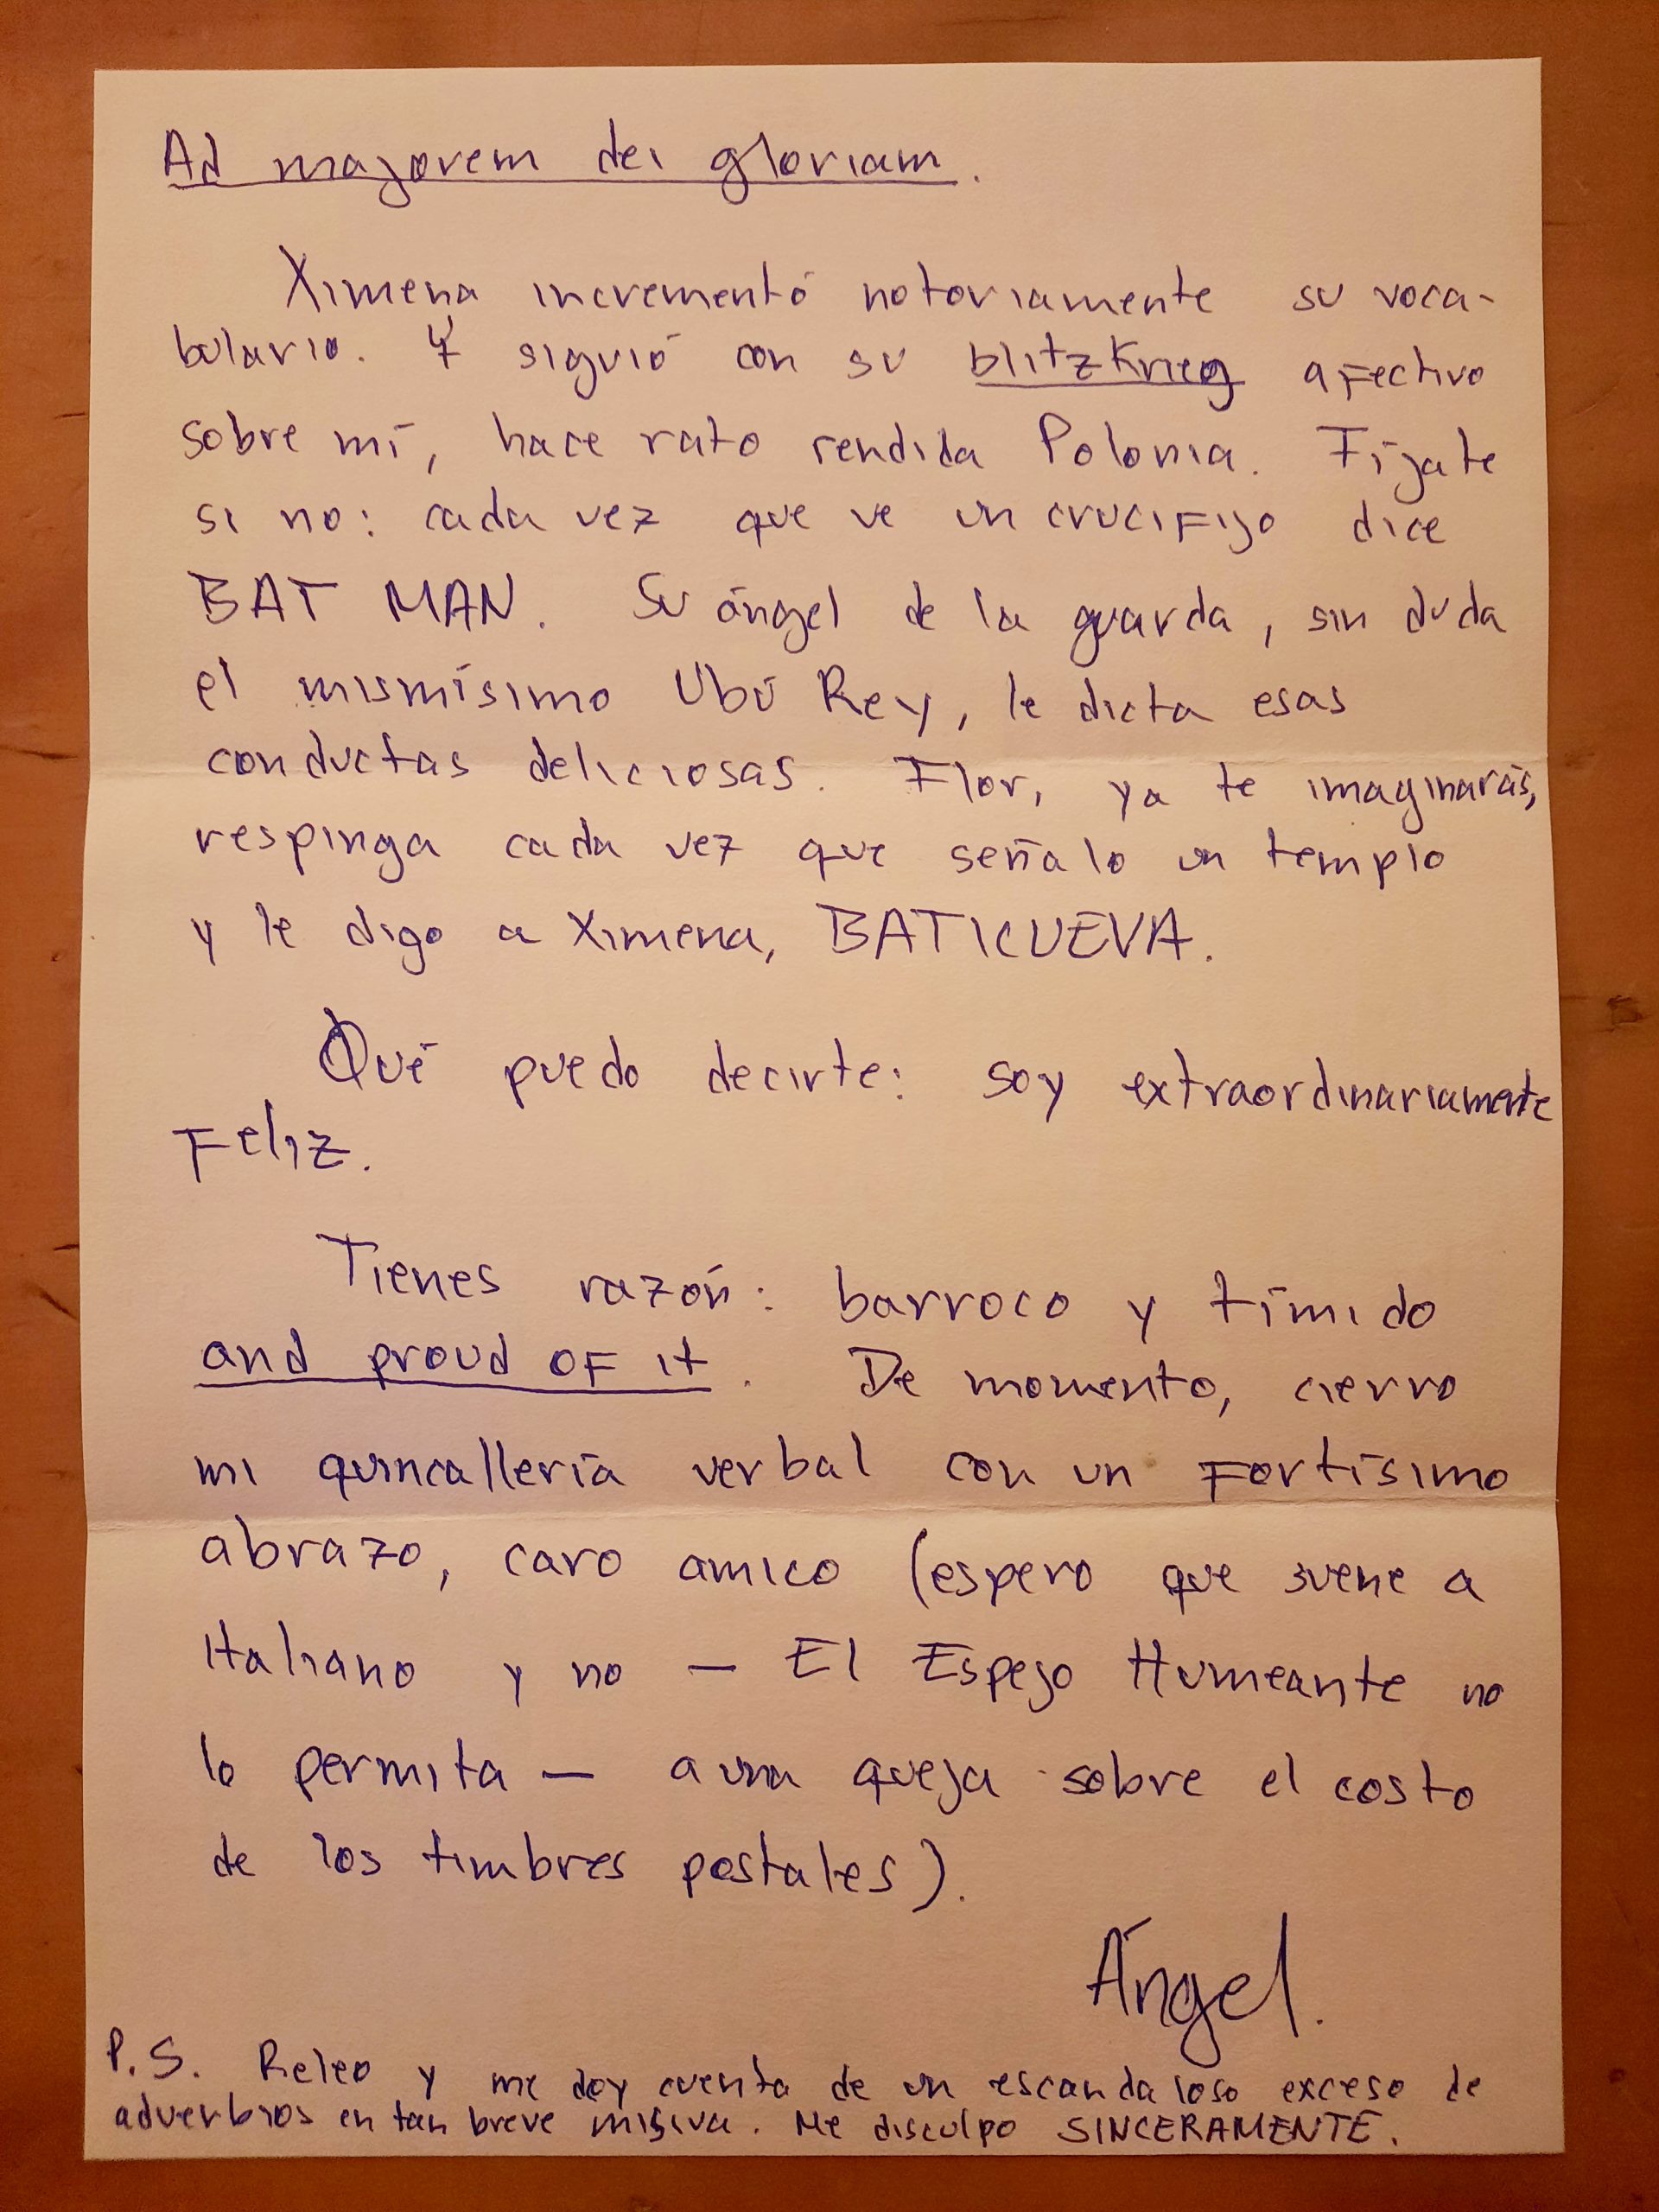 Ad majorem dei gloriam.
Ximena incrementó notoriamente su voca-
bulario. Y siguió con su blitzkrieg afectivo
sobre mí, hace rato rendida Polonia. Fíjate
si no: cada vez que ve un crucifijo dice
BAT MAN. Su ángel de la guarda, sin duda
el mismísimo Ubú Rey, le dicta esas
conductas deliciosas. Flor, ya te imaginarás,
respinga cada vez que señalo un templo
y le digo a Ximena, BATICUEVA.
Qué puedo decirte: soy extraordinariamente
feliz.
Tienes razón: barroco y tímido
and proud of it. De momento, cierro
mi quincallería verbal con un fortísimo
abrazo, caro amico (espero que suene a
italiano y no — El Espejo Humeante no
lo permita — a una queja sobre el costo
de los timbres postales).
Ángel.
P.S. Releo y me doy cuenta de un escandaloso exceso de
adverbios en tan breve misiva. Me disculpo SINCERAMENTE.